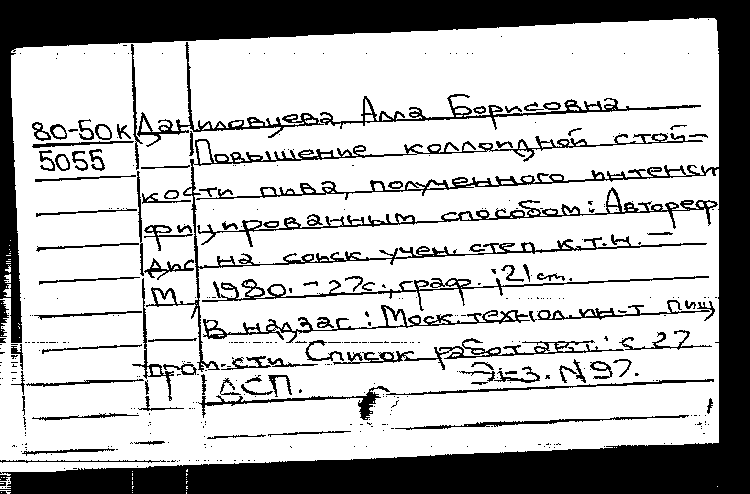 80-50к Даниловцева, Алла Борисовна.
5055 Повышение коллоидной стой-
кости пива, полученного интенси
фицированным способом: Автореф
дис. на соиск. учен. степ. к.т.н. –
М., 1980. – 27с., граф.; 21 cm.
В надзаг: Моск. технол. ин-т пищ
пром-сти. Список работ авт.: с. 27
ДСП. Экз. N 97.